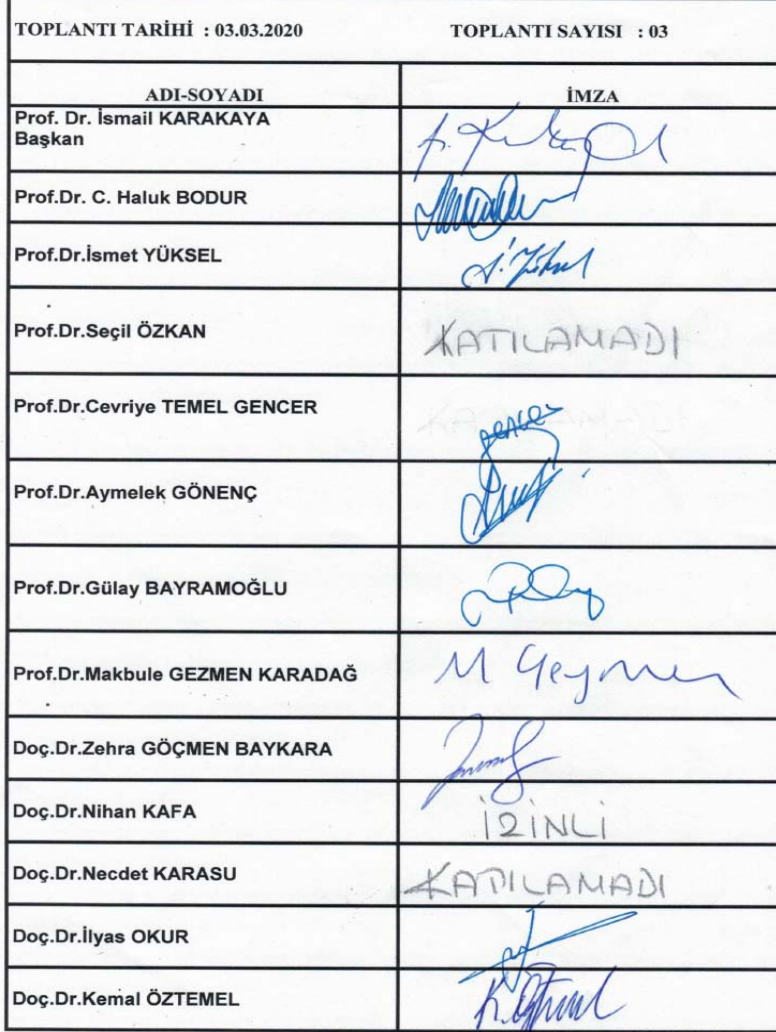 TOPLANTI TARİHİ : 03.03.2020 TOPLANTI SAYISI : 03
ADI-SOYADI İMZA
Prof. Dr. İsmail KARAKAYA
Başkan
Prof.Dr. C. Haluk BODUR
Prof.Dr.İsmet YÜKSEL
Prof.Dr.Seçil ÖZKAN KATILAMADI
Prof.Dr.Cevriye TEMEL GENCER
Prof.Dr.Aymelek GÖNENÇ
Prof.Dr.Gülay BAYRAMOĞLU
Prof.Dr.Makbule GEZMEN KARADAĞ
Doç.Dr.Zehra GÖÇMEN BAYKARA
Doç.Dr.Nihan KAFA İZİNLİ
Doç.Dr.Necdet KARASU KATILAMADI
Doç.Dr.İlyas OKUR
Doç.Dr.Kemal ÖZTEMEL